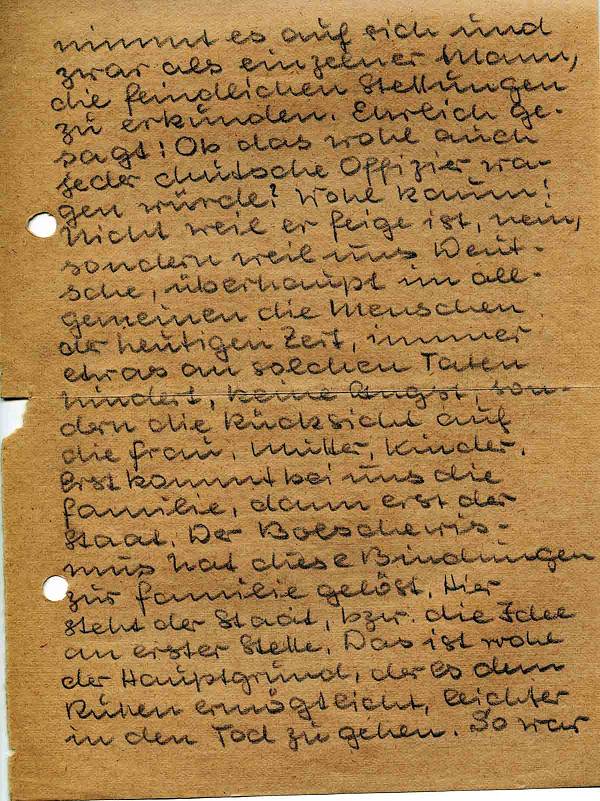 nimmt es auf sich und
zwar als einzelner Mann,
die feindlichen Stellungen
zu erkunden. Ehrlich ge-
sagt! Ob das wohl auch
jeder deutsche Offizier wa-
gen würde? Wohl kaum!
Nicht weil er feige ist, nein,
sondern weil uns Deut-
sche, überhaupt im all-
gemeinen die Menschen
der heutigen Zeit, immer
etwas an solchen Taten
hindert, keine Angst, son-
dern die Rücksicht auf
die Frau, Mutter, Kinder.
Erst kommt bei uns die
Familie, dann erst der
Staat. Der Bolschewis-
mus hat diese Bindungen
zur Familie gelöst. Hier
steht der Staat, bzw. die Idee
an erster Stelle. Das ist wohl
der Hauptgrund, der es dem
Russen ermöglicht, leichter
in den Tod zu gehen. So war